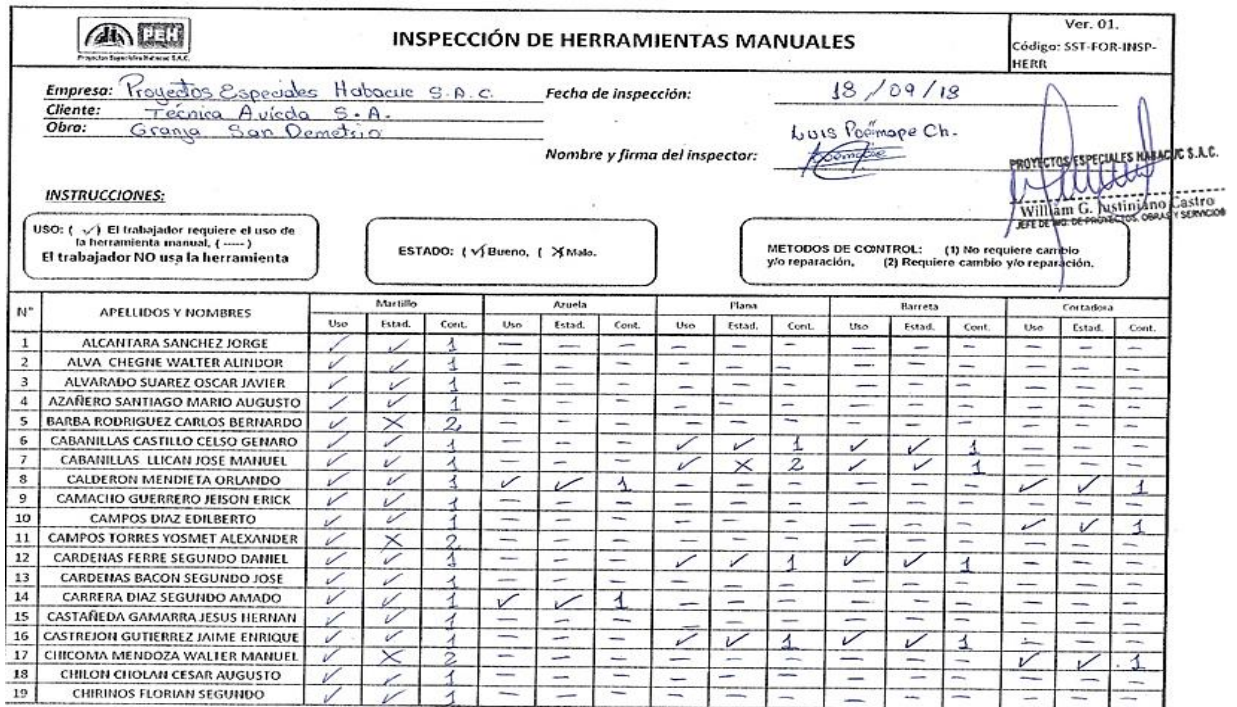 PEH
Proyectos Especiales Habacuc S.A.C.
INSPECCIÓN DE HERRAMIENTAS MANUALES
Ver. 01.
Código: SST-FOR-INSP-
HERR
Empresa: Proyectos Especiales Habacuc S.A.C.
Fecha de inspección: 18/09/18
Cliente: Técnica Avícola S.A.
Obra: Granja San Demetrio
Nombre y firma del inspector: Luis Poémape Ch.
PROYECTOS ESPECIALES HABACUC S.A.C.
William G. Justiniano Castro
JEFE DE ING. DE PROYECTOS, OBRAS Y SERVICIOS
INSTRUCCIONES:
USO: ( ✓ ) El trabajador requiere el uso de
la herramienta manual, ( ----- )
El trabajador NO usa la herramienta
ESTADO: ( ✓ ) Bueno, ( X ) Malo.
METODOS DE CONTROL: (1) No requiere cambio
y/o reparación, (2) Requiere cambio y/o reparación.
N° APELLIDOS Y NOMBRES Martillo Azuela Plana Barreta Cortadora
Uso Estad. Cont. Uso Estad. Cont. Uso Estad. Cont. Uso Estad. Cont. Uso Estad. Cont.
1 ALCANTARA SANCHEZ JORGE ✓ ✓ 1 — — — — — — — — — — — —
2 ALVA CHEGNE WALTER ALINDOR ✓ ✓ 1 — — — — — — — — — — — —
3 ALVARADO SUAREZ OSCAR JAVIER ✓ ✓ 1 — — — — — — — — — — — —
4 AZAÑERO SANTIAGO MARIO AUGUSTO ✓ ✓ 1 — — — — — — — — — — — —
5 BARBA RODRIGUEZ CARLOS BERNARDO ✓ X 2 — — — — — — — — — — — —
6 CABANILLAS CASTILLO CELSO GENARO ✓ ✓ 1 — — — ✓ ✓ 1 ✓ ✓ 1 — — —
7 CABANILLAS LLICAN JOSE MANUEL ✓ ✓ 1 — — — ✓ X 2 ✓ ✓ 1 — — —
8 CALDERON MENDIETA ORLANDO ✓ ✓ 1 ✓ ✓ 1 — — — — — — ✓ ✓ 1
9 CAMACHO GUERRERO JEISON ERICK ✓ ✓ 1 — — — — — — — — — — — —
10 CAMPOS DIAZ EDILBERTO ✓ ✓ 1 — — — — — — — — — ✓ ✓ 1
11 CAMPOS TORRES YOSMET ALEXANDER ✓ X 2 — — — — — — — — — — — —
12 CARDENAS FERRE SEGUNDO DANIEL ✓ ✓ 1 — — — ✓ ✓ 1 ✓ ✓ 1 — — —
13 CARDENAS BACON SEGUNDO JOSE ✓ ✓ 1 — — — — — — — — — — — —
14 CARRERA DIAZ SEGUNDO AMADO ✓ ✓ 1 ✓ ✓ 1 — — — — — — — — —
15 CASTAÑEDA GAMARRA JESUS HERNAN ✓ ✓ 1 — — — — — — — — — — — —
16 CASTREJON GUTIERREZ JAIME ENRIQUE ✓ ✓ 1 — — — ✓ ✓ 1 ✓ ✓ 1 — — —
17 CHICOMA MENDOZA WALTER MANUEL ✓ X 2 — — — — — — — — — ✓ ✓ 1
18 CHILON CHOLAN CESAR AUGUSTO ✓ ✓ 1 — — — — — — — — — — — —
19 CHIRINOS FLORIAN SEGUNDO ✓ ✓ 1 — — — — — — — — — — — —